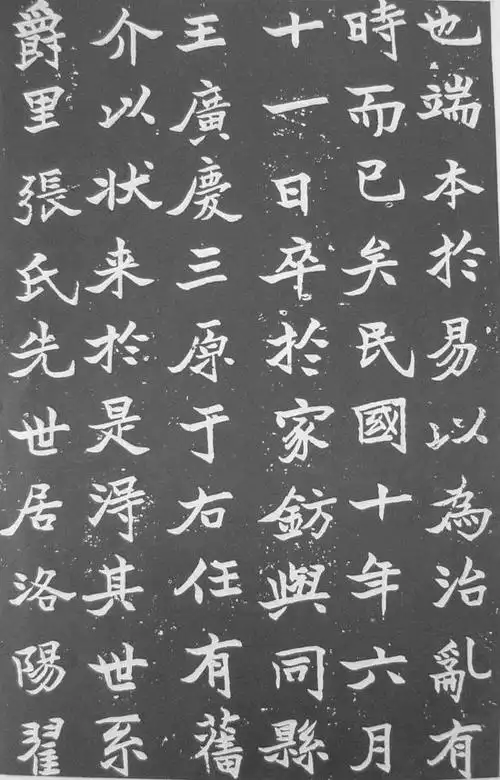 也端本於易以為治亂有
時而已矣民國十年六月
十一日卒於家鈁與同縣
王廣慶三原于右任有舊
介以状来於是淂其世系
爵里張氏先世居洛陽翟